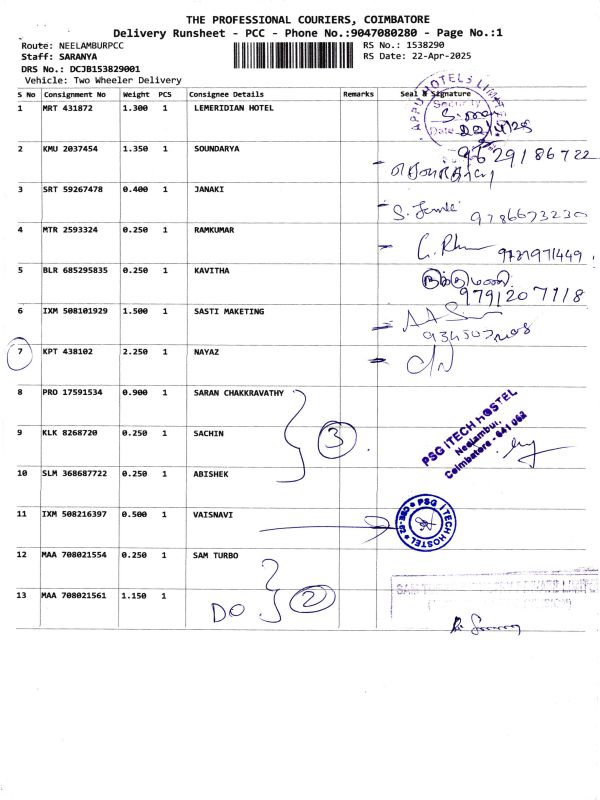 THE PROFESSIONAL COURIERS, COIMBATORE
Delivery Runsheet - PCC - Phone No.:9047080280 - Page No.:1
Route: NEELAMBURPCC RS No.: 1538290
Staff: SARANYA RS Date: 22-Apr-2025
DRS No.: DCJB153829001
Vehicle: Two Wheeler Delivery
S No Consignment No Weight PCS Consignee Details Remarks Seal & Signature
1 MRT 431872 1.300 1 LEMERIDIAN HOTEL
APPU HOTELS LIMITED
Security
Date 22/4/25
2 KMU 2037454 1.350 1 SOUNDARYA 9629186722
3 SRT 59267478 0.400 1 JANAKI 9786673230
4 MTR 2593324 0.250 1 RAMKUMAR
5 BLR 685295835 0.250 1 KAVITHA 9791207718
6 IXM 508101929 1.500 1 SASTI MAKETING
7 KPT 438102 2.250 1 NAYAZ
8 PRO 17591534 0.900 1 SARAN CHAKKRAVATHY
9 KLK 8268720 0.250 1 SACHIN 3
PSG iTECH HOSTEL
Neelambur,
Coimbatore - 641 062
10 SLM 368687722 0.250 1 ABISHEK
11 IXM 508216397 0.500 1 VAISNAVI
PSG iTECH HOSTEL
12 MAA 708021554 0.250 1 SAM TURBO
13 MAA 708021561 1.150 1 DO 2